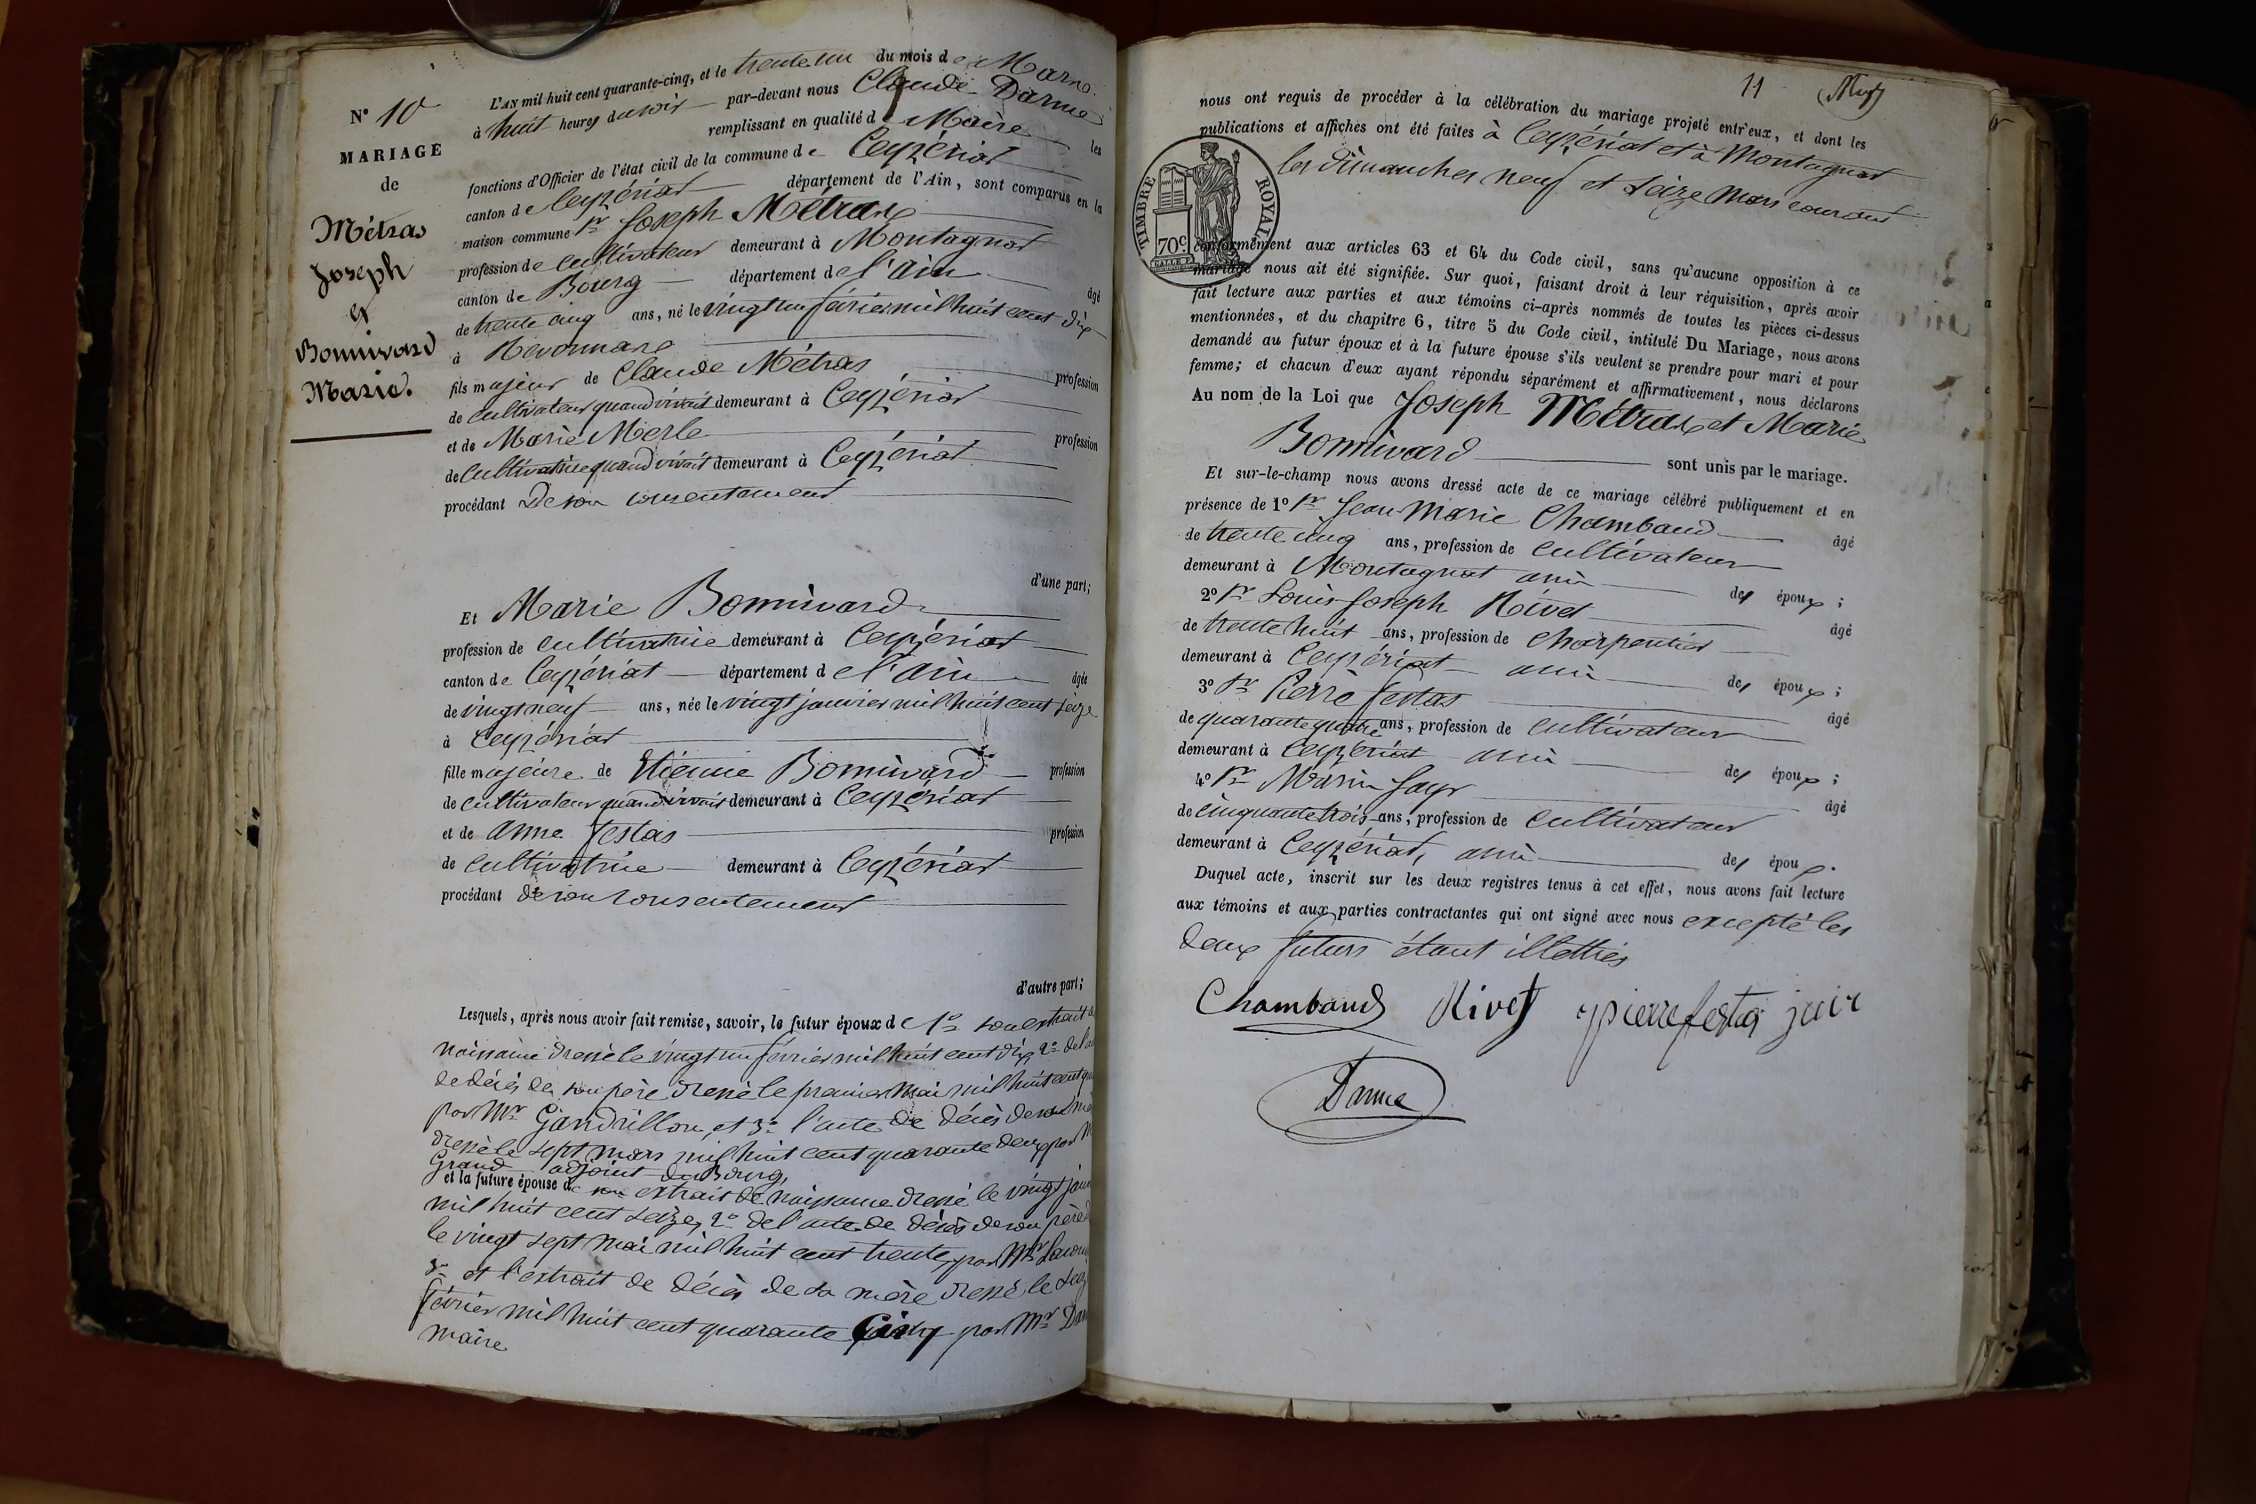 N° 10
MARIAGE
de
Métras
Joseph
et
Bonnivard
Marie.
L'AN mil huit cent quarante-cinq, et le trente un du mois de Mars
à huit heures du soir par-devant nous Claude Darme
remplissant en qualité de Maire les
fonctions d'Officier de l'état civil de la commune de Ceyzériat
canton de Ceyzériat département de l'Ain, sont comparus en la
maison commune Sr Joseph Métras
profession de cultivateur demeurant à Montagnat
canton de Bourg département de l'ain âgé
de trente cinq ans, né le vingt un février mil huit cent dix
à Revonnas
fils majeur de Claude Métras profession
de cultivateur quand vivait demeurant à Ceyzériat
et de Marie Merle profession
de cultivatrice quand vivait demeurant à Ceyzériat
procédant De son consentement
d'une part;
Et Marie Bonnivard
profession de cultivatrice demeurant à Ceyzériat
canton de Ceyzériat département de l'ain âgée
de vingt neuf ans, née le vingt janvier mil huit cent seize
à Ceyzériat
fille majeure de Etienne Bonnivard profession
de cultivateur quand vivait demeurant à Ceyzériat
et de anne festas profession
de cultivatrice demeurant à Ceyzériat
procédant de son consentement
d'autre part;
Lesquels, après nous avoir fait remise, savoir, le futur époux de 1° son extrait de
naissance dressé le vingt un février mil huit cent dix, 2° de l'acte
de décès de son père dressé le premier Mai mil huit cent
par Mr Gandrillon, et 3° l'acte de décès de sa
dressé le sept mars mil huit cent quarante deux par
Grand adjoint de Bourg,
et la future épouse de son extrait de naissance dressé le vingt
mil huit cent seize, 2° de l'acte de décès de son père
le vingt sept mai mil huit cent trente, par Mr
3° et l'extrait de décès de sa mère dressé le
février mil huit cent quarante Cinq par Mr
maire
11
nous ont requis de procéder à la célébration du mariage projeté entr'eux, et dont les
publications et affiches ont été faites à Ceyzériat et à Montagnat
les dimanches neuf et seize Mars courant
TIMBRE ROYAL
70c.
conformément aux articles 63 et 64 du Code civil, sans qu'aucune opposition à ce
mariage nous ait été signifiée. Sur quoi, faisant droit à leur réquisition, après avoir
fait lecture aux parties et aux témoins ci-après nommés de toutes les pièces ci-dessus
mentionnées, et du chapitre 6, titre 5 du Code civil, intitulé Du Mariage, nous avons
demandé au futur époux et à la future épouse s'ils veulent se prendre pour mari et pour
femme; et chacun d'eux ayant répondu séparément et affirmativement, nous déclarons
Au nom de la Loi que Joseph Métras et Marie
Bonnivard sont unis par le mariage.
Et sur-le-champ nous avons dressé acte de ce mariage célébré publiquement et en
présence de 1° Sr Jean Marie Chambaud âgé
de trente cinq ans, profession de cultivateur
demeurant à Montagnat ami des époux;
2° Sr Louis Joseph Rivet âgé
de trente huit ans, profession de charpentier
demeurant à Ceyzériat ami des époux;
3° Sr Pierre festas âgé
de quarante quatre ans, profession de cultivateur
demeurant à Ceyzériat ami des époux;
4° Sr Marin âgé
de cinquante trois ans, profession de cultivateur
demeurant à Ceyzériat, ami des époux.
Duquel acte, inscrit sur les deux registres tenus à cet effet, nous avons fait lecture
aux témoins et aux parties contractantes qui ont signé avec nous excepté les
deux futurs étant illettrés
Chambaud Rivet pierre festas
Darme